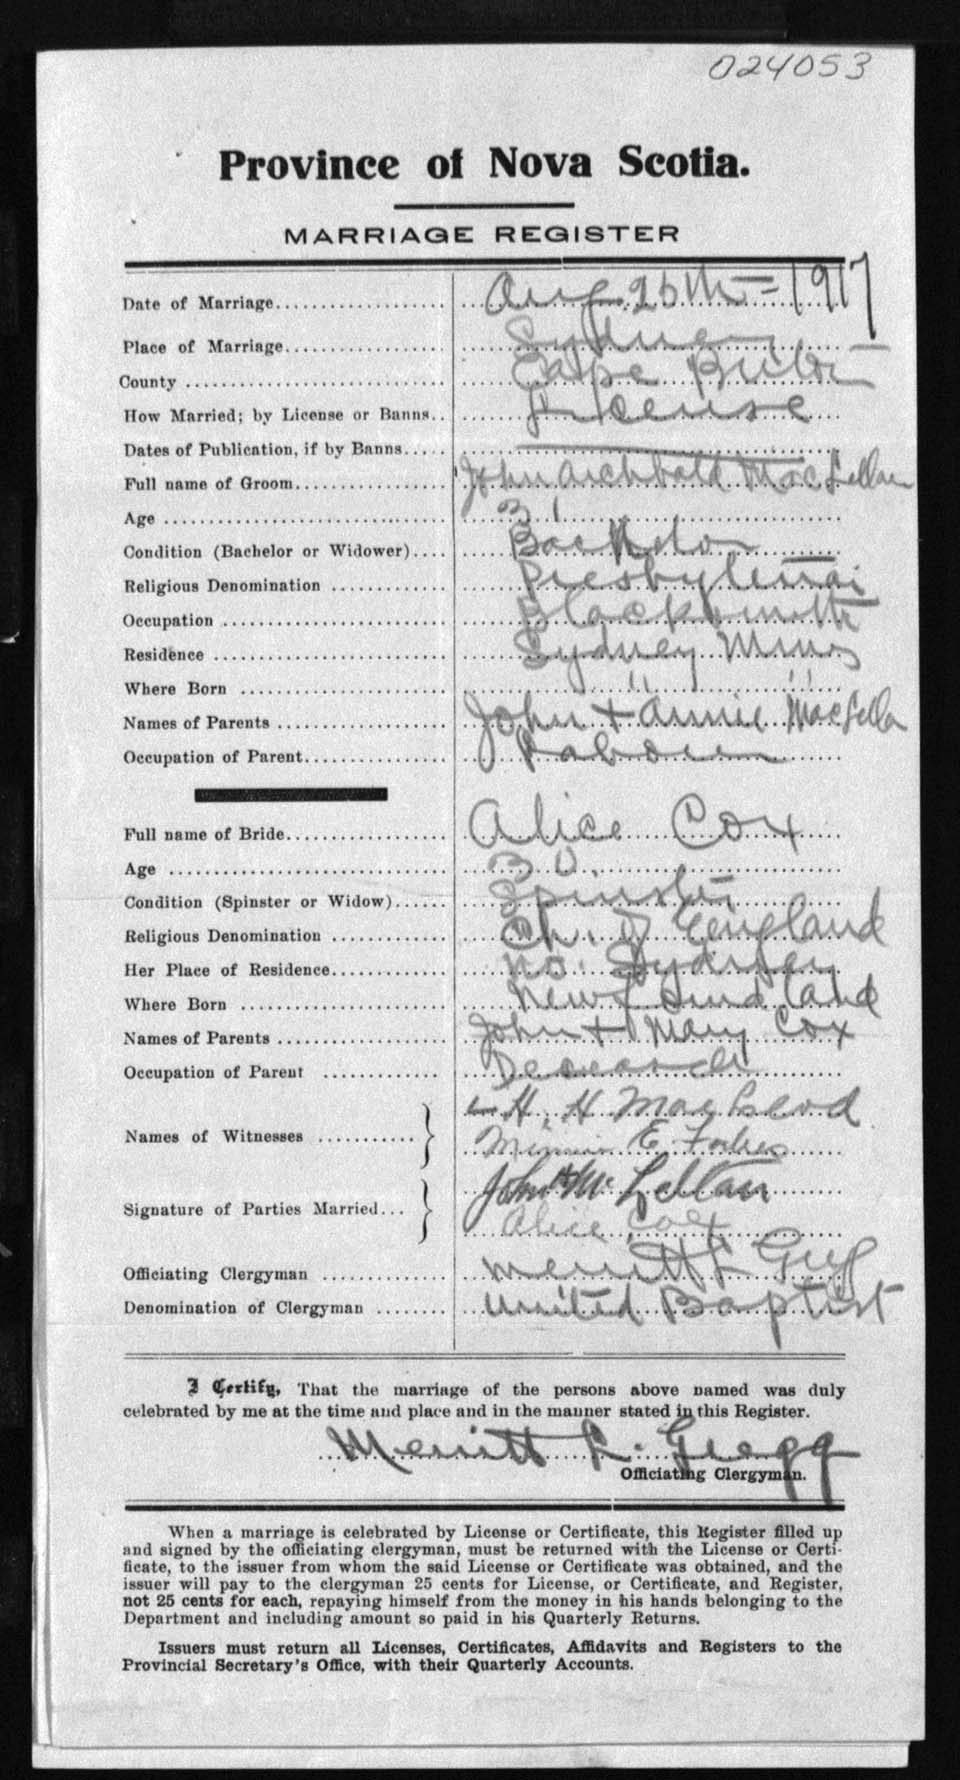 024053
Province of Nova Scotia.
MARRIAGE REGISTER
Date of Marriage Aug. 26th - 1917
Place of Marriage Sydney
County Cape Breton
How Married; by License or Banns License
Dates of Publication, if by Banns
Full name of Groom John Archbold MacLellan
Age 31
Condition (Bachelor or Widower) Bachelor
Religious Denomination Presbyterian
Occupation Blacksmith
Residence Sydney Mines
Where Born " "
Names of Parents John + Annie MacLellan
Occupation of Parent Laborer
Full name of Bride Alice Cox
Age 30
Condition (Spinster or Widow) Spinster
Religious Denomination Ch. of England
Her Place of Residence No. Sydney
Where Born Newfoundland
Names of Parents John + Mary Cox
Occupation of Parent Deceased
Names of Witnesses H. H. MacLeod
Minnie E. Forbes
Signature of Parties Married John A McLellan
Alice Cox
Officiating Clergyman Merritt L Gregg
Denomination of Clergyman United Baptist
I Certify, That the marriage of the persons above named was duly
celebrated by me at the time and place and in the manner stated in this Register.
Merritt L. Gregg
Officiating Clergyman.
When a marriage is celebrated by License or Certificate, this Register filled up
and signed by the officiating clergyman, must be returned with the License or Certi-
ficate, to the issuer from whom the said License or Certificate was obtained, and the
issuer will pay to the clergyman 25 cents for License, or Certificate, and Register,
not 25 cents for each, repaying himself from the money in his hands belonging to the
Department and including amount so paid in his Quarterly Returns.
Issuers must return all Licenses, Certificates, Affidavits and Registers to the
Provincial Secretary's Office, with their Quarterly Accounts.